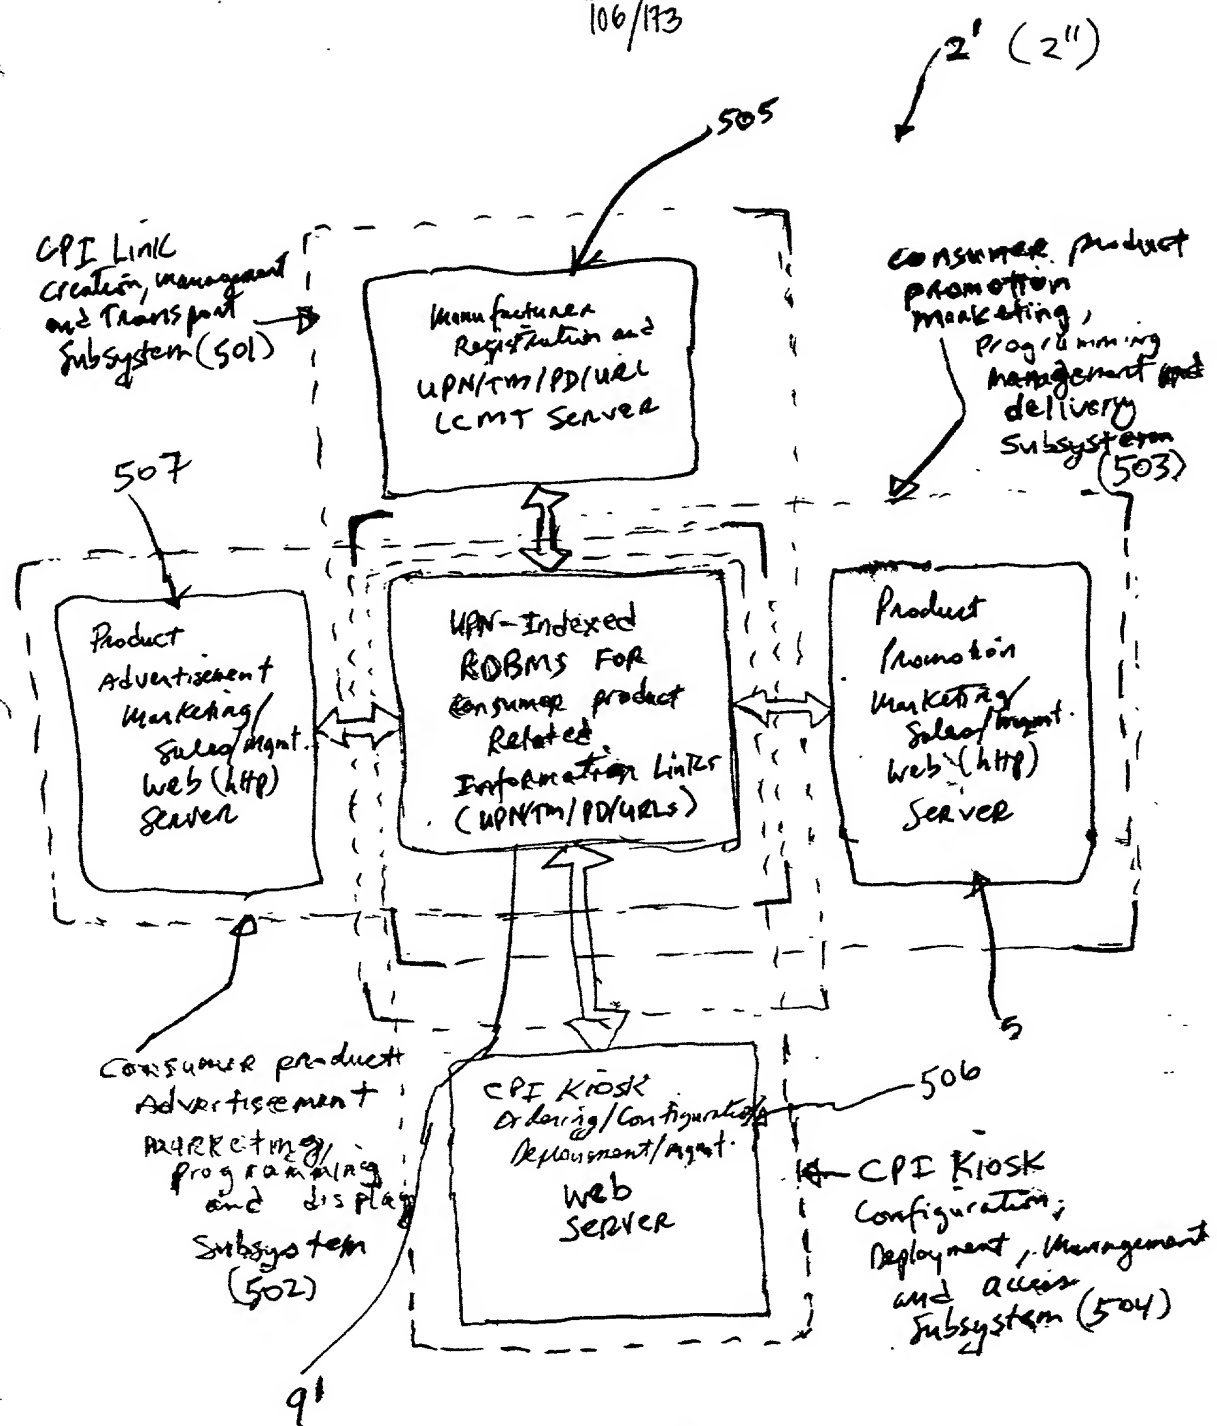 106/173
2' (2")
505
CPI Link
Creation, management
and Transport
Subsystem (501)
Consumer product
promotion
marketing,
Programming
management and
delivery
Subsystem
(503)
Manufacturer
Registration and
UPN/TM/PD/URL
LCMT Server
507
Product
Advertisement
Marketing/
Sales/mgmt.
Web (http)
Server
UPN-Indexed
RDBMS FOR
Consumer product
Related
Information Links
(UPN/TM/PD/URLs)
Product
Promotion
Marketing/
Sales/mgmt.
Web (http)
Server
5
Consumer product
Advertisement
marketing,
programming
and display
Subsystem
(502)
CPI Kiosk
Ordering/Configuration/
Deployment/Mgmt.
Web
Server
506
CPI Kiosk
Configuration,
Deployment, Management
and access
Subsystem (504)
9'